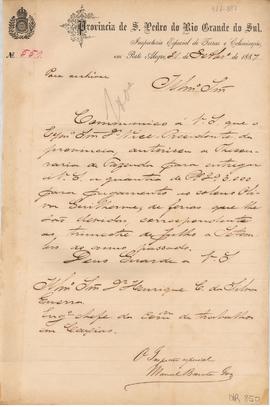 Provincia de S. Pedro do Rio Grande do Sul.
Inspectoria Especial de Terras e Colonisação,
Nº 550 em Porto Alegre, de 1887
Para archivar
Illmo Snr
Communico a V. S. que o
Exmo Snr Dr Vice-Presidente da
provincia, autorisou a Thesou-
raria de Fazenda para entregar
a V. S. a quantia de
para pagamento ao colono
Guilherme, de ferias que lhe
são devidas, correspondente
ao trimestre de Julho a Setem-
bro do anno passado.
Deus Guarde a V. S.
Illmo Snr Dr Henrique C. da Silva
Guerra
Engº chefe da Comm de trabalhos
em Caxias
O Inspector especial
Manoel Barata Góes